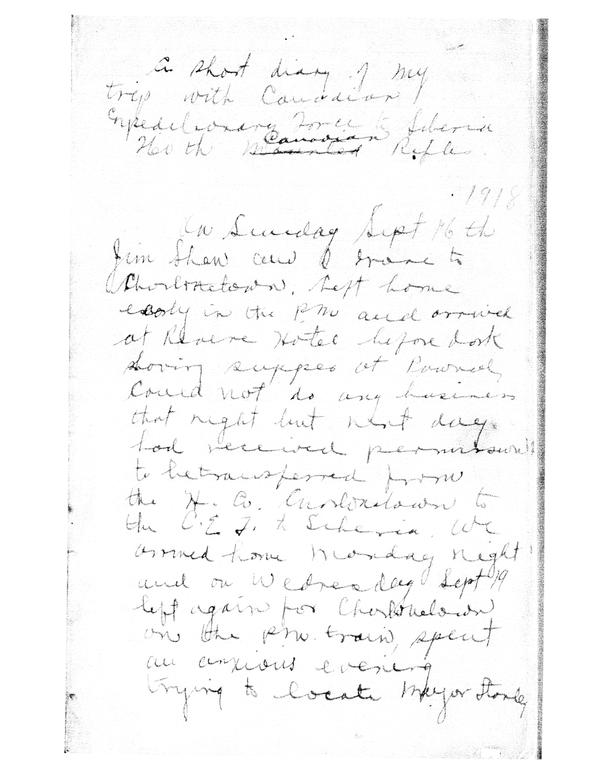 A short diary of my
trip with Canadian
Expedilionary Force to Siberia
260 th Canadian Rifle
1918
On Sunday Sept 16 th
Jim Shaw and I drove to
Charlottetown. Left home
early in the P.M and arrived
at Revere Hotel before dark
having supper at Pownal,
Could not do any business
that night but next day
had received permission
to be transferred from
the H. Co. Charlottetown to
the C.E.F. to Siberia. We
arrived home Monday night
and on Wednesday Sept 19
left again for Charlottetown
on the P.M. train, spent
an anxious evening
trying to locate Mayor Stanley